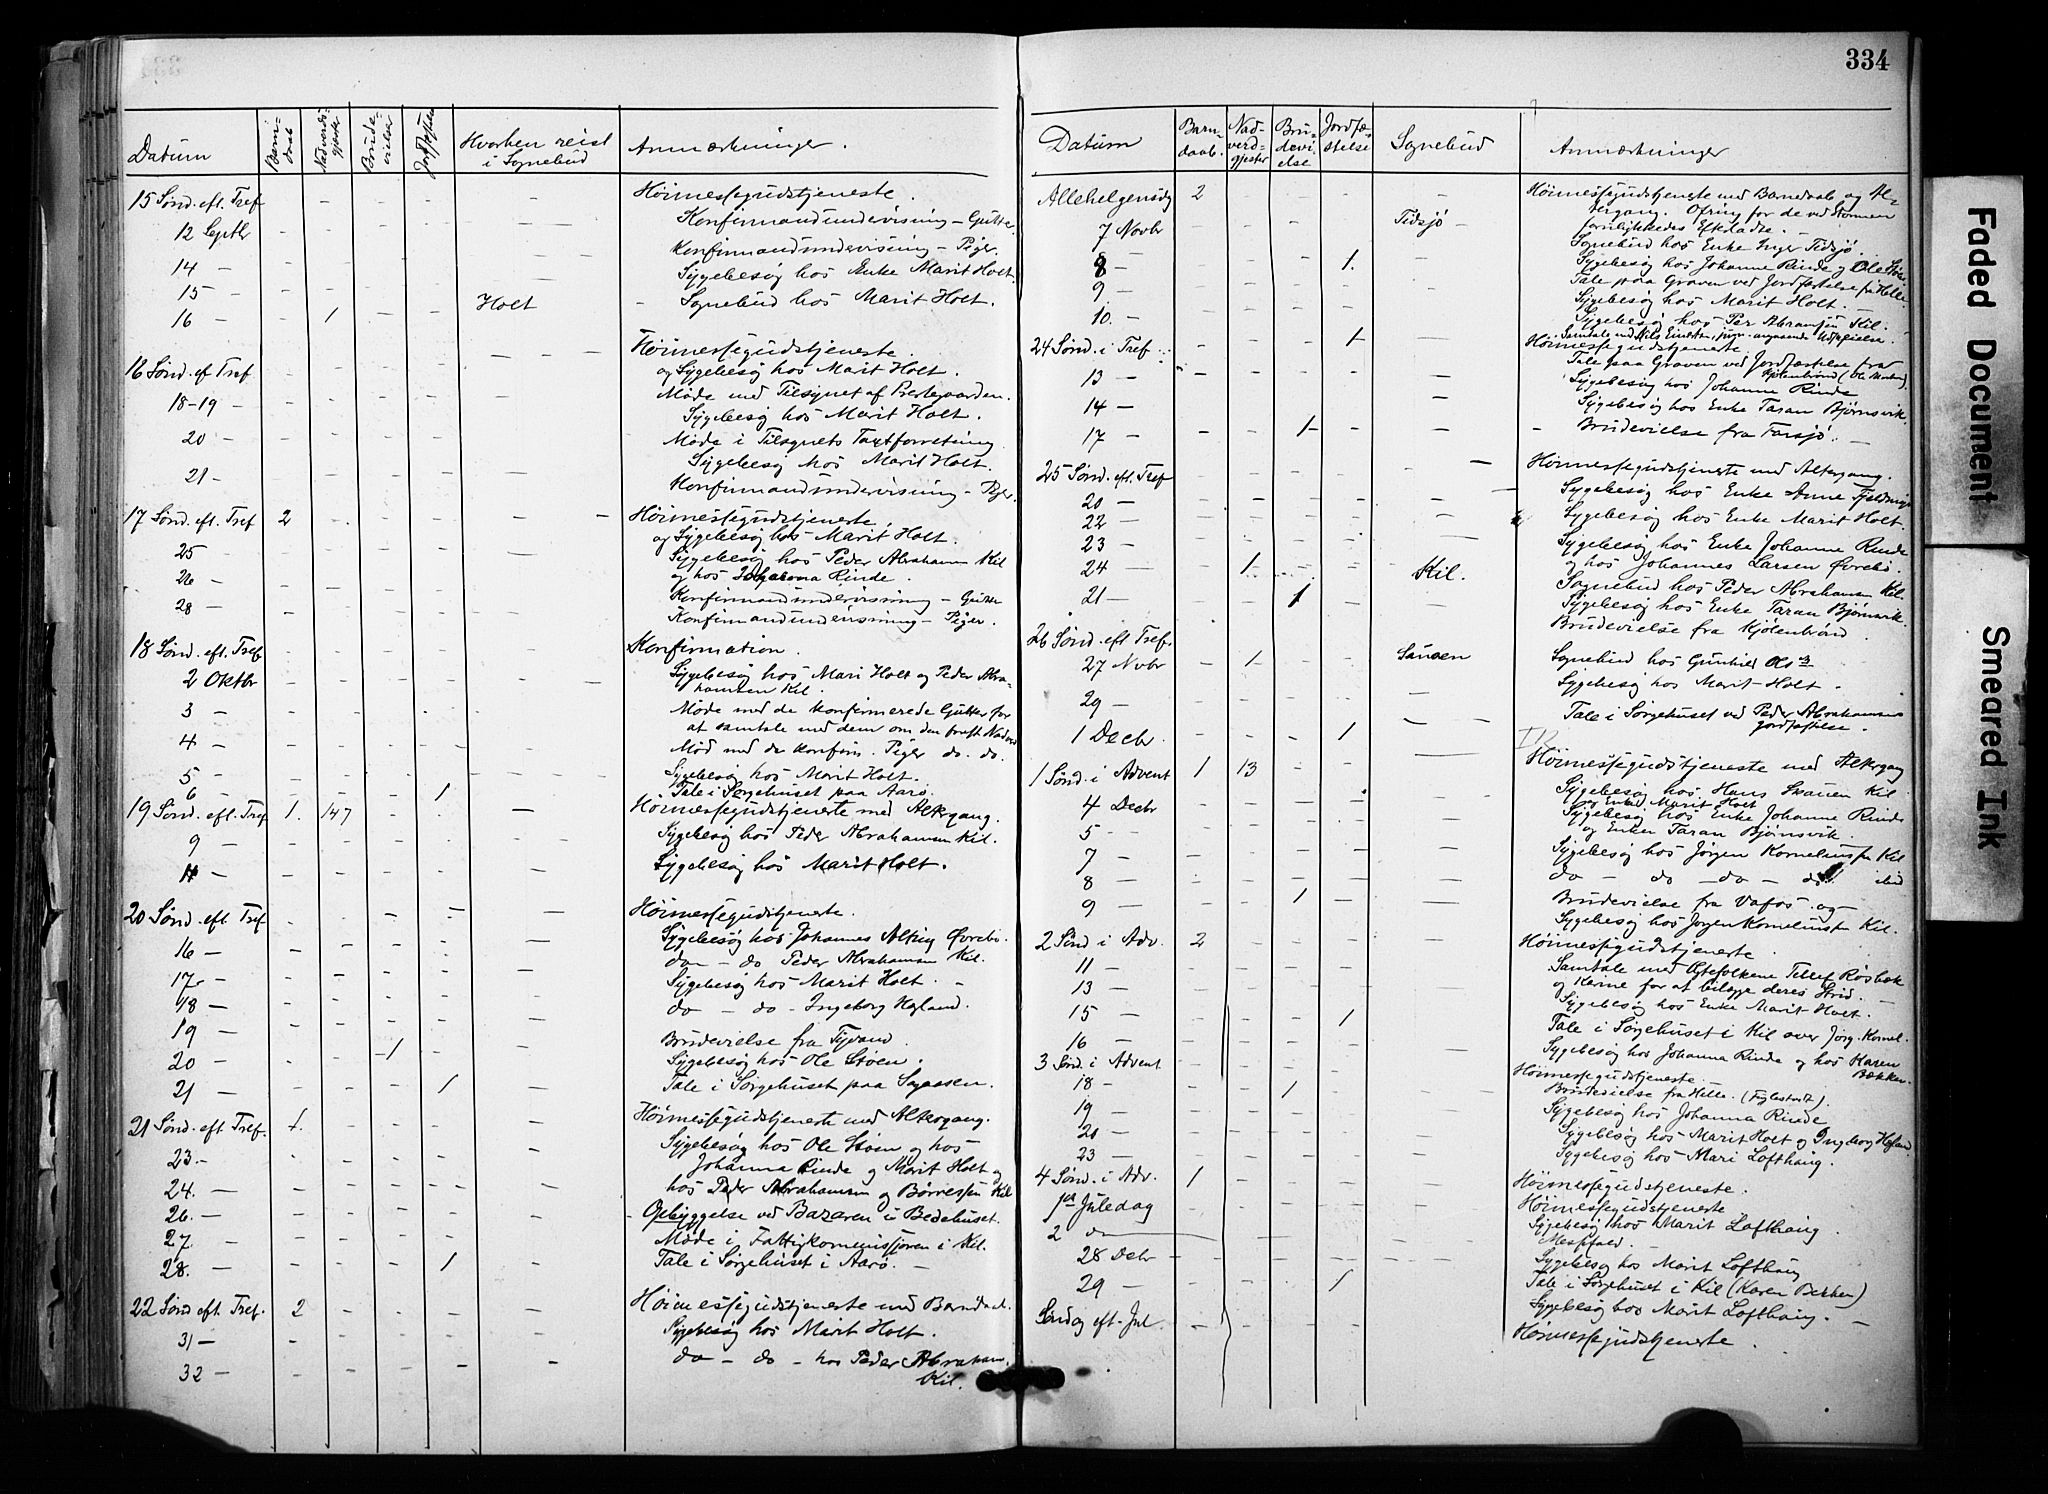 334
Datum
Barn-
daab
Nadverds-
gjester
Brude-
vielser
Jordfæstelser
Hvorhen reist
i Sognebud
Anmærkninger.
15 Sønd. eft. Tref
Høimessegudstjeneste.
Konfirmandundervisning – Gutter.
12 Septbr
Konfirmandundervisning – Piger.
14 –
Sygebesøg hos Enke Marit Holt.
15 –
16 – 1 Holt Sognebud hos Marit Holt.
16 Sønd. ef Tref
Høimessegudstjeneste.
og Sygebesøg hos Marit Holt.
18-19 – Møde med Tilsynet af Prestegaarden.
Sygebesøg hos Marit Holt.
20 – Møde i Tilsynets Taxtforretning
Sygebesøg hos Marit Holt.
21 –
Konfirmandundervisning – Piger.
17 Sønd. eft. Tref 2 Høimessegudstjeneste
og Sygebesøg hos Marit Holt.
25
Sygebesøg hos Peder Abrahamsen Kil
26 – og hos Johanna Rinde.
28 – Konfirmandundervisning – Gutter
Konfirmandundervisning – Piger.
18 Sønd. eft. Tref Konfirmation.
2 Oktbr Sygebesøg hos Mari Holt og Peder Abra-
hamsen Kil.
3 – Møde med de konfirmerede Gutter for
at samtale med dem om den første Nadverd
4 – Mød med de konfirm. Piger do. do.
5 – Sygebesøg hos Marit Holt.
6 – 1 Tale i Sørgehuset paa Aarø.
19 Sønd. eft. Tref 1. 147 Høimessegudstjeneste med Altergang.
9 – Sygebesøg hos Peder Abrahamsen Kil.
11 – Sygebesøg hos Marit Holt.
20 Sønd. eft. Tref Høimessegudstjeneste.
16 – Sygebesøg hos Johannes Øvrebø.
do – do Peder Abrahamsen Kil.
17 – Sygebesøg hos Marit Holt.
18 – do – do – Ingeborg Hegland.
19 –
20 – 1 Brudevielse fra Tyvand.
Sygebesøg hos Ole Støen.
21 – 1 Tale i Sørgehuset paa
21 Sønd. eft Tref. 1. Høimessegudstjeneste med Altergang.
23. – Sygebesøg hos Ole Støen og hos
Johanna Rinde og Marit Holt og
24. – hos Peder Abrahamsen og Børresen Kil
26. – Opbyggelse ved Bazaren i Bedehuset.
27. – Møde i Fattigkommissjonen i Kil.
28. – 1 Tale i Sørgehuset i Aarø. –
22 Sønd eft. Tref. 2 Høimessegudstjeneste med Barnedaab.
31 – Sygebesøg hos Marit Holt.
32 – do – do – hos Peder Abraham.
Kil.
Datum
Barn-
daab.
Nad-
verd-
gjester
Bru-
devi-
else
Jordfæ-
stelse
Sognebud
Anmærkninger
Allehelgensdg 2 Høimessegudstjeneste med Barndaab og Al-
tergang. Ofring for de ved Stormen
7 Novbr Tidsjø – forulykkedes Efterladte. –
Sognebud hos Enke Inger Tidsjø.
8 – 1. Sygebesøg hos Johanne Rinde og Ole Støen
9 – Tale paa Graven ved Jordfæstelse fra Helle.
Sygebesøg hos Marit Holt. –
10. – Sygebesøg hos Per Abramsen Kil. –
24 Sønd. i Tref 1 Høimessegudstjeneste
Tale paa Graven ved Jordfæstelse fra
13 – Kjølenbrønd
14 – Sygebesøg hos Johanne Rinde
Sygebesøg hos Enke Taran Bjørnsvik.
17 – 1 Brudevielse fra Farsjø. –
25 Sønd. eft. Tref Høimessegudstjeneste med Altergang.
20 – Sygebesøg hos Enke Anne
22 – Sygebesøg hos Enke Marit Holt.
23 – Sygebesøg hos Enke Johanne Rinde
og hos Johannes Larsen Øvrebø.
24 – 1 Kil. Sognebud hos Peder Abrahamsen Kil.
21 – 1 Sygebesøg hos Enke Taran Bjørnsvik.
Brudevielse fra Kjølenbrønd.
26 Sønd. eft Tref.
27 Nvbr 1 Sognebud hos Gunhild
Sygebesøg hos Marit Holt.
29 –
1 Decbr. 1 Tale i Sørgehuset ved Peder Abrahamsens
Jordfæstelse.
1 Sønd. i Advent 1 13 Høimessegudstjeneste med Altergang
4 Decbr Sygebesøg hos Hans Skauen Kil
og Enke Marit Holt
5 – Sygebesøg hos Enke Johanne Rinde
og Enken Taran Bjørnsvik.
7 – Sygebesøg hos Jørgen Korneliussen Kil
8 – do – do – do – do
9 – 1 Brudevielse fra Vafos. og –
Sygebesøg hos Jørgen Korneliussen Kil.
2 Sønd i Adv. 2 Høimessegudstjeneste.
11 – Samtale med Ægtefolkene Tellef Røsbak
13 – og Kone for at bilægge deres Strid. –
Sygebesøg hos Enke Marit Holt.
15 – 1 Tale i Sørgehuset i Kil over Jørg. Kornel.
16 – Sygebesøg hos Johanna Rinde og hos Karen
Bækken.
3 Sønd. i Advent Høimessegudstjeneste.
18 – 1 Brudevielse fra Helle.
19 – Sygebesøg hos Johanna Rinde
20 – Sygebesøg hos Marit Holt og Ingeborg Hegland.
23 – Sygebesøg hos Mari Lofthaug.
4 Sønd. i Adv. 1 Høimessegudstjeneste.
1ste Juledag Høimessegudstjeneste
Sygebesøg hos Marit Lofthaug
2 do Messefald. –
28 Decbr Sygebesøg hos Marit Lofthaug
29 – 1 Tale i Sørgehuset i Kil (Karen Bækken)
Sygebesøg hos Marit Lofthaug. –
Søndag eft. Jul. Høimessegudstjeneste.
Faded Document
Smeared Ink